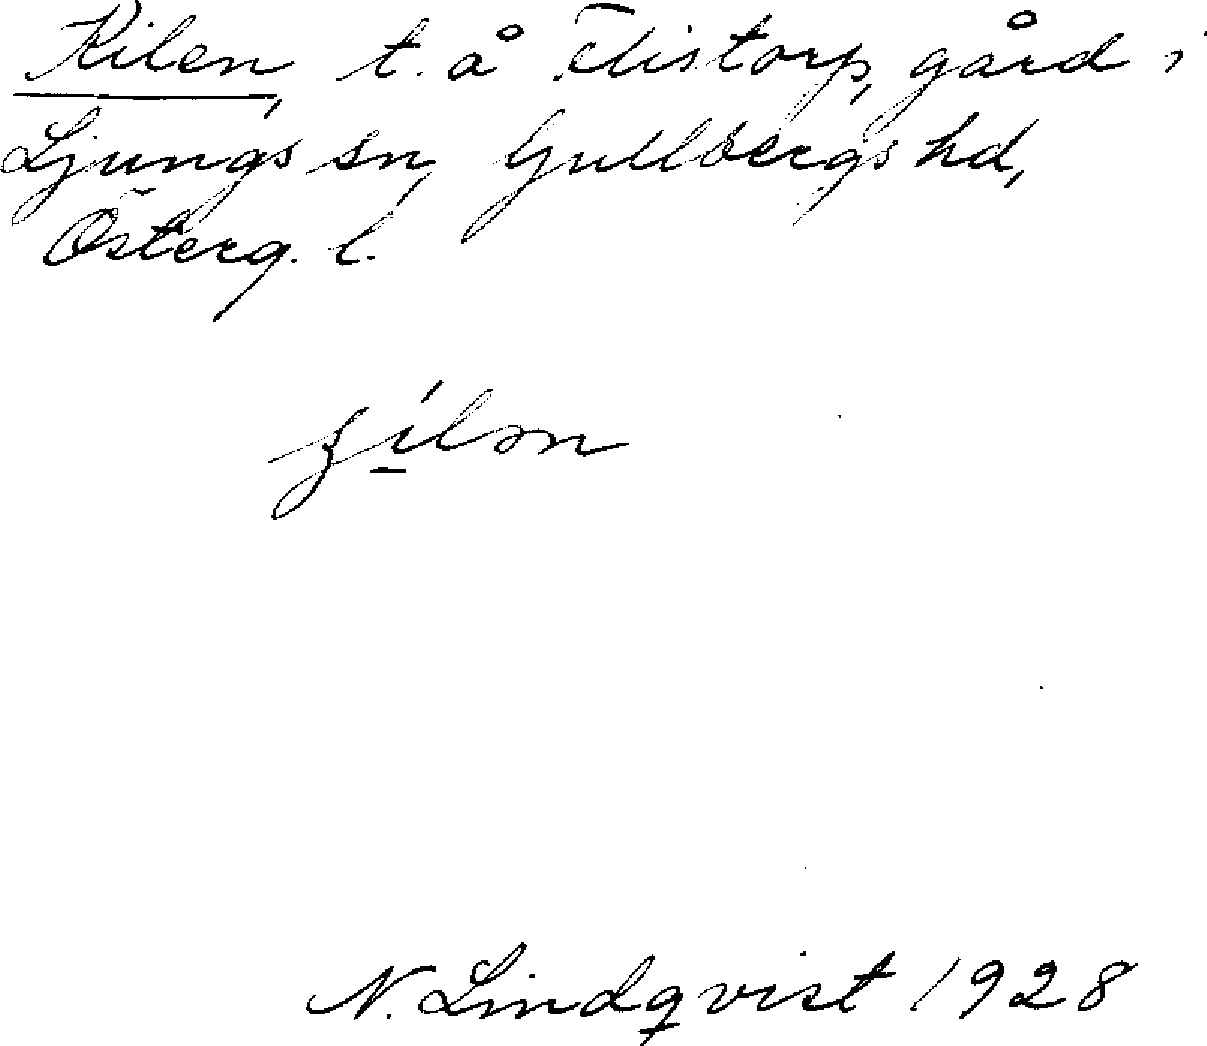 Kilen, t. å Tlistorp, gård i
Ljungs sn, Gullbergs hd,
Österg. l.
N. Lindqvist 1928